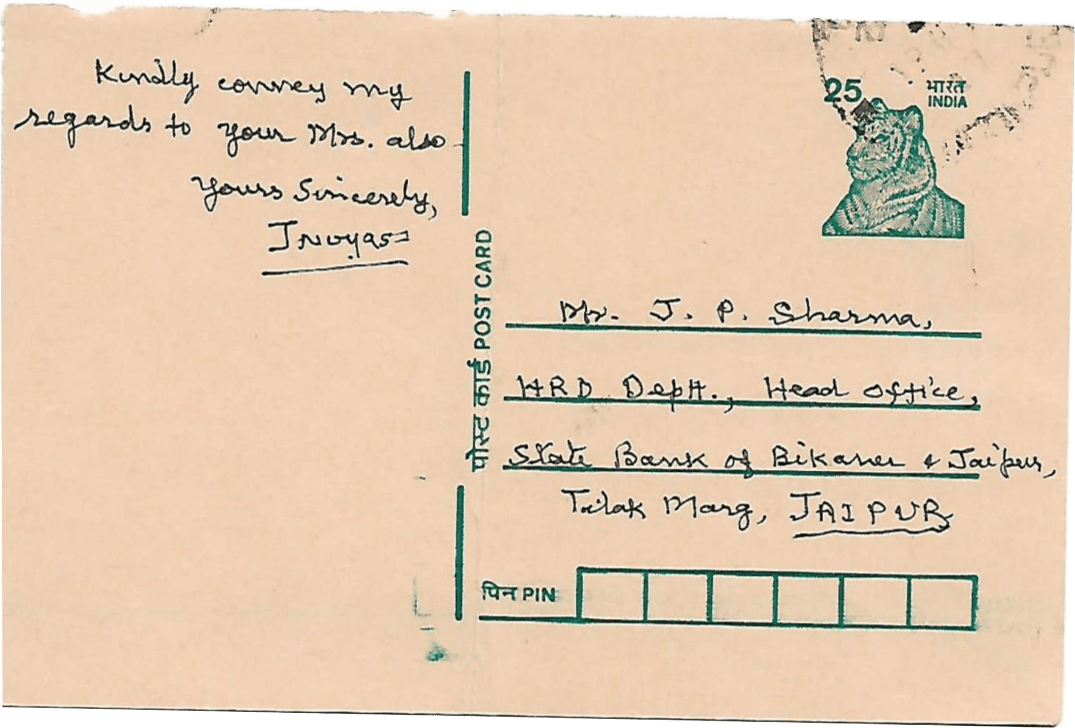 Kindly convey my
regards to your Mrs. also
Yours Sincerely,
पोस्ट कार्ड POST CARD
25
भारत
INDIA
Mr. J. P. Sharma,
HRD Deptt., Head Office,
State Bank of Bikaner & Jaipur,
Tilak Marg, JAIPUR
पिन PIN